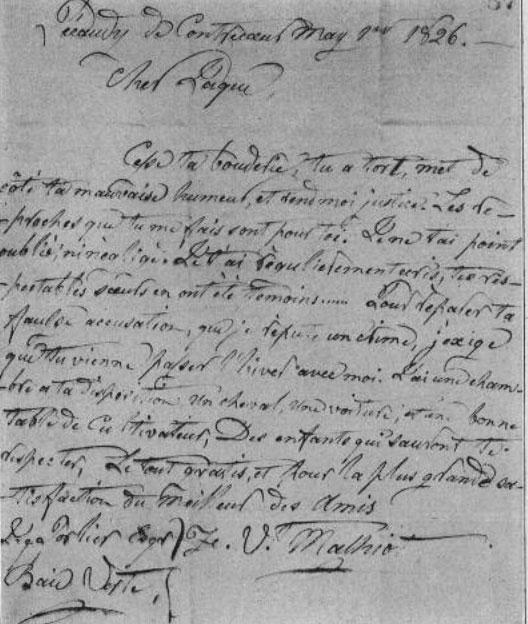 de Contrecœur May 1er 1826.
Cher Jaque
Cesse ta bouderie, tu a tort, met de
côté ta mauvaise humeur, et rend moi justice. Les re-
-proches que tu me fais sont pour toi. Je ne t'ai point
oublié, ni négligé. Je t'ai régulièrement écris, tes res-
-pectables sœurs en ont été témoins..... Pour réparer ta
fausse accusation, que je répute un crime, j'exige
que tu vienne passer l'hiver avec moi. J'ai une cham-
-bre a ta disposition un cheval, une voiture, et une bonne
table de Cultivateur, Des enfants qui sauront te
respecter, Le tout gratis, et pour la plus grande sa-
-tisfaction du meilleur des Amis
Porlier Esqr } V. Malhiot
Baie Verte,